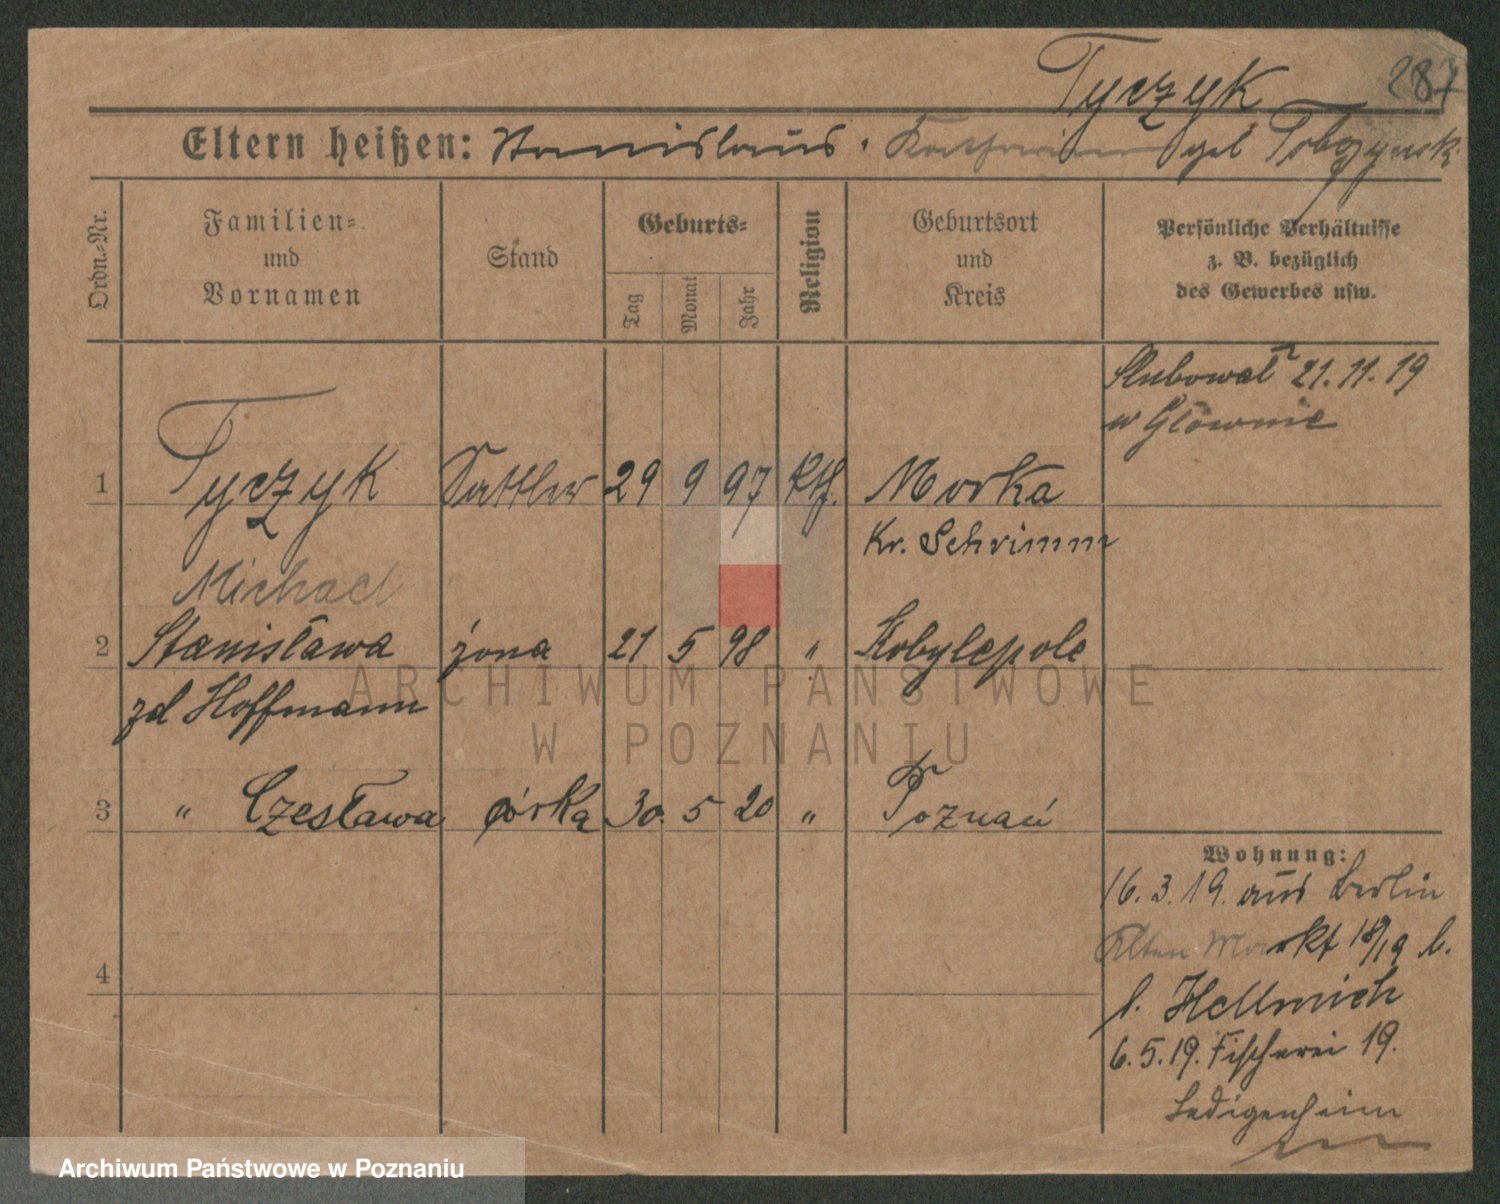 Tyczyk 287
Eltern heißen: Stanislaus, Katharina geb
Ordn.-Nr.
Familien- und Vornamen
Stand
Geburts-
Tag
Monat
Jahr
Religion
Geburtsort und Kreis
Persönliche Verhältnisse
z. B. bezüglich
des Gewerbes usw.
Ślubował 21.11.19
w Głównie
1 Tyczyk Sattler 29 9 97 Kth. Morka
Kr. Schrimm
Michael
2 Stanisława żona 21 5 98 " Kobylepole
zd Hoffmann
3 " Czesława córka 30. 5 20 " Poznań
4
Wohnung:
16.3.19. aus Berlin
Alten Markt 18/19 b.
b. Hellmich
6.5.19. Fischerei 19.
Ledigenheim
ARCHIWUM PAŃSTWOWE
W POZNANIU
Archiwum Państwowe w Poznaniu